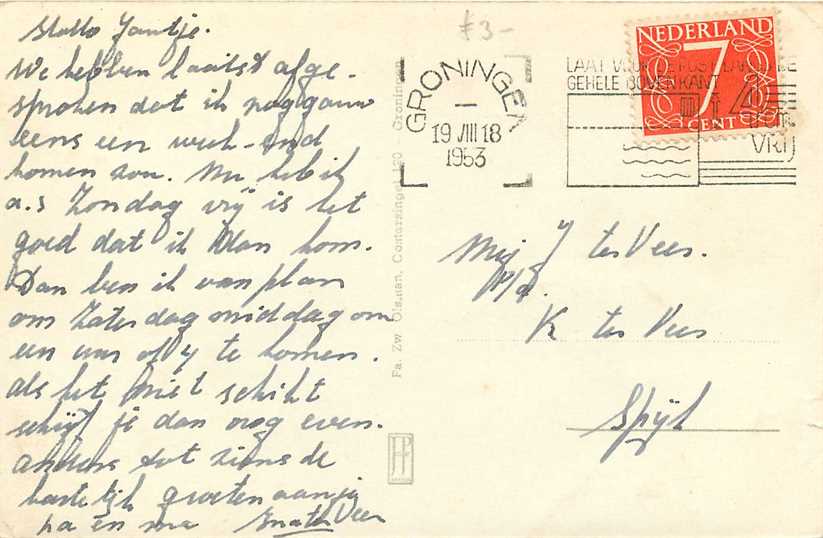 Hallo Jantje.
We hebben laatst afge-
sproken dat ik nog gauw
eens een week-end
komen zou. Nu heb ik
a.s Zondag vrij is het
goed dat ik dan kom.
Dan ben ik van plan
om Zaterdagmiddag om
een uur of 4 te komen.
als het niet schikt
schrijf je dan nog even.
anders tot ziens de
hartelijk groeten aan je
pa en ma
ter Veer
Fa. Zw. Contersingel 190 - Groningen
£3-
GRONINGEN
19 VIII 18
1953
LAAT VOOR
GEHELE BOVENKANT
VRIJ
NEDERLAND
7
CENT
Mej J ter Veer.
p/a.
K ter Veer
Spijk